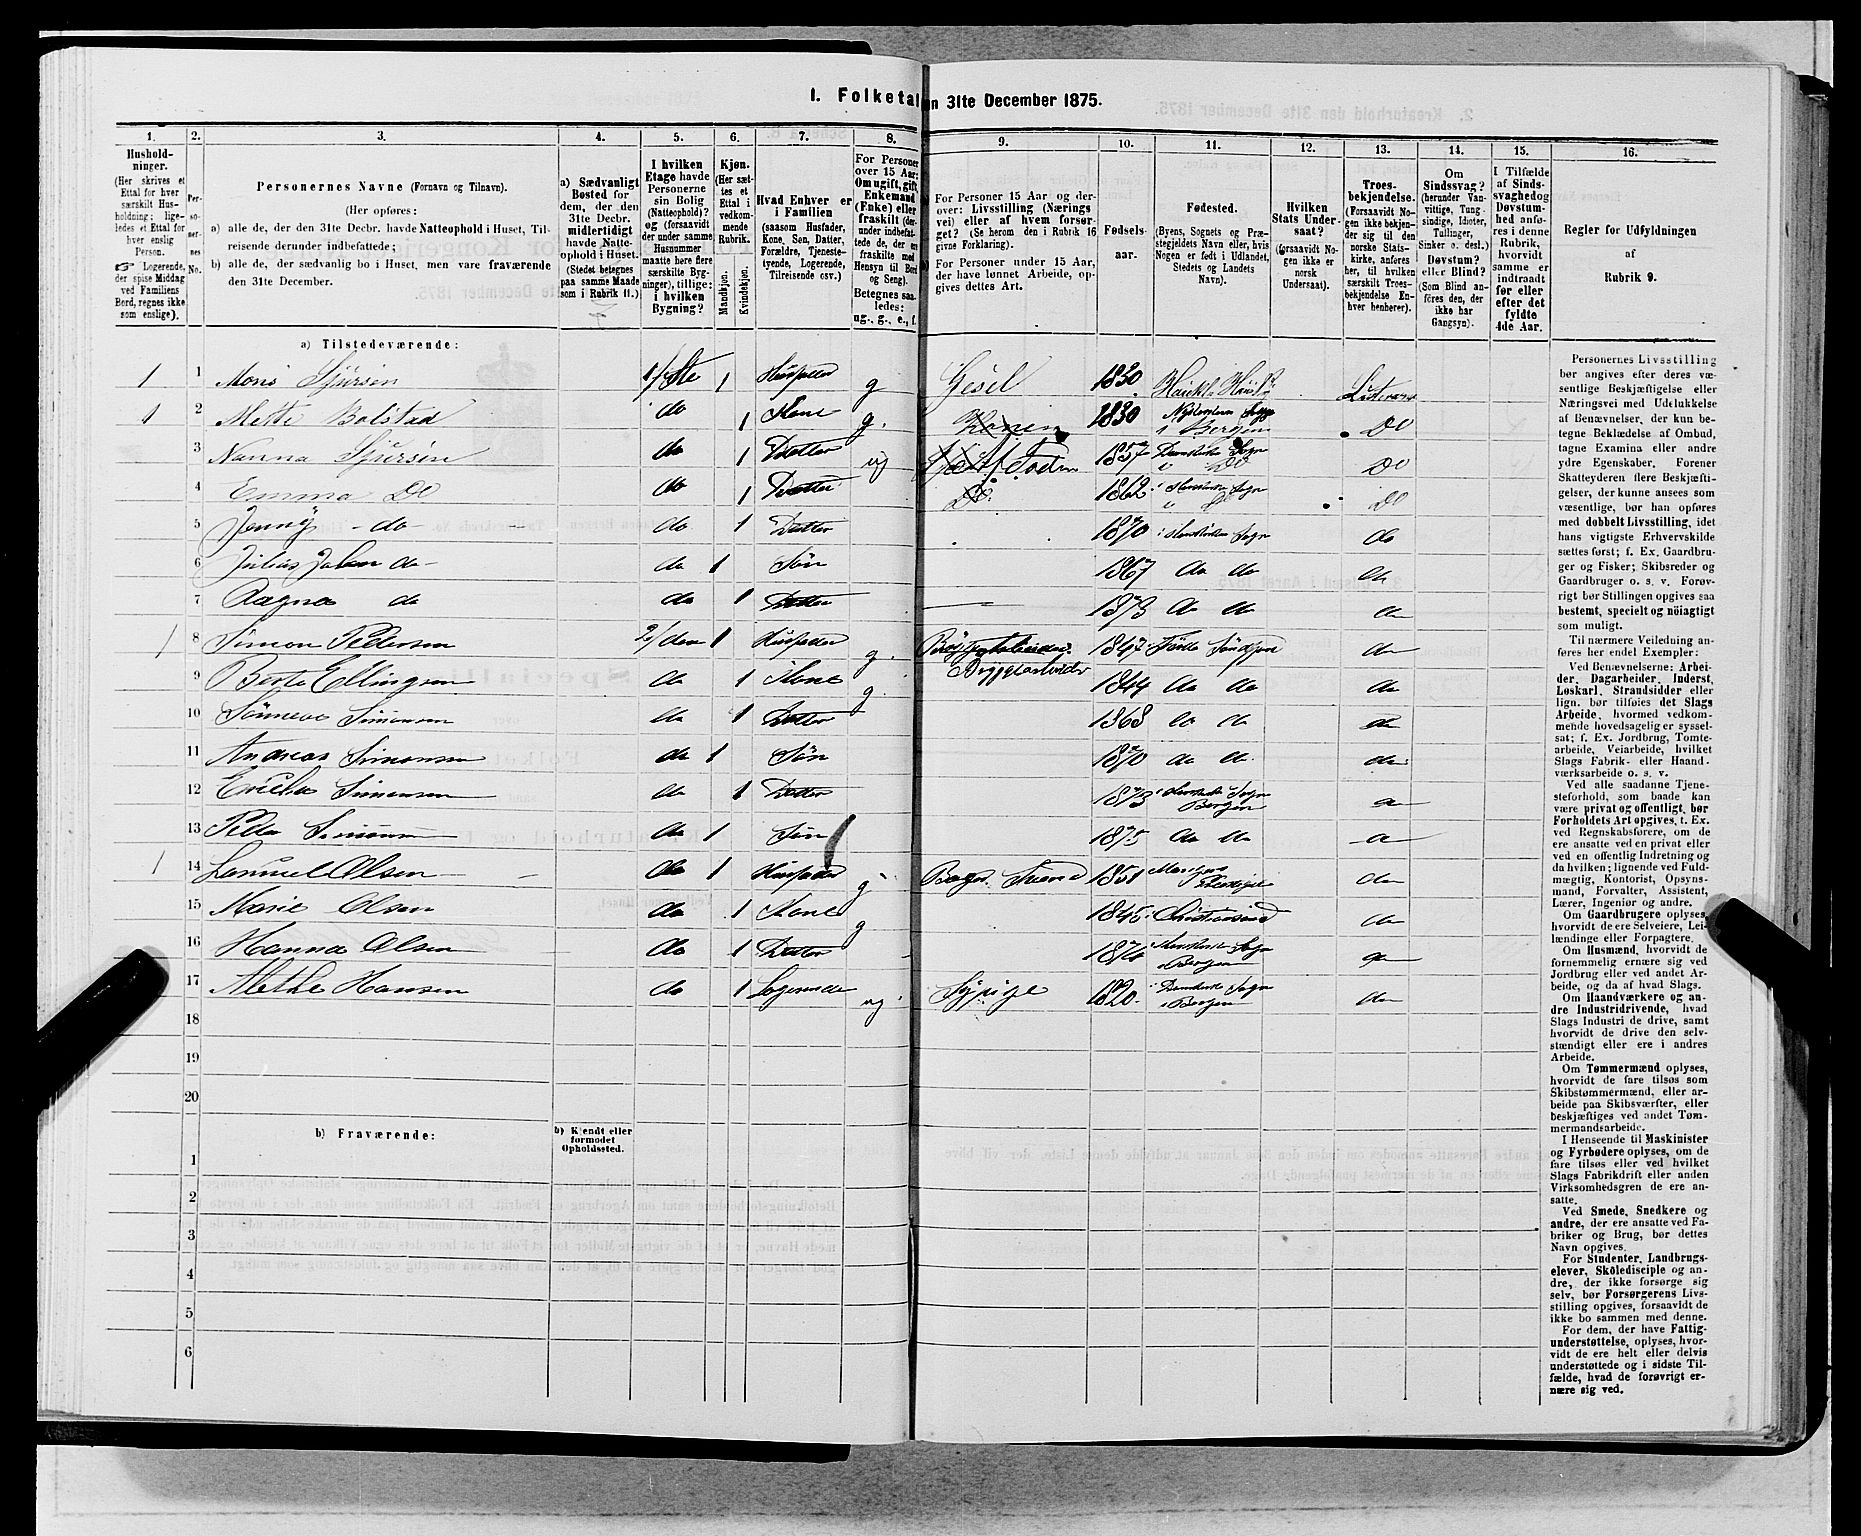 1. Folketal
n 31te December 1875.
1. 2. 3. 4. 5. 6. 7. 8. 9. 10. 11. 12. 13. 14. 15. 16.
Hushold-
ninger.
(Her skrives et
Ettal for hver
særskilt Hus-
holdning; lige-
ledes et Ettal
for hver enslig
Person.
☞ Logerende,
der spise Middag
ved Familiens
Bord, regnes ikke
som enslige).
Per-
so-
ner-
nes
No.
Personernes Navne (Fornavn og Tilnavn).
(Her opføres:
a) alle de, der den 31te Decbr. havde Natteophold i Huset, Til-
reisende derunder indbefattede;
b) alle de, der sædvanlig bo i Huset, men vare fraværende
den 31te December.
a) Sædvanligt
Bosted for
dem, der den
31te Decbr.
midlertidigt
havde Natte-
ophold i Huset.
(Stedet betegnes
paa samme Maade
som i Rubrik 11.)
I hvilken
Etage havde
Personerne
sin Bolig
(Natteophold)?
og (forsaavidt
der under samme
Husnummer
maatte høre flere
særskilte Byg-
ninger), tillige:
i hvilken
Bygning?
Kjøn.
(Her sæt-
tes et
Ettal i
vedkom-
mende
Rubrik.
Mandkjøn.
Kvindekjøn.
Hvad Enhver er
i Familien
(saasom Husfader,
Kone, Søn, Datter,
Forældre, Tjeneste-
tyende, Logerende,
Tilreisende csv.)
For Personer
over 15 Aar:
Om ugift, gift,
Enkemand
(Enke) eller
fraskilt (der-
under indbefat-
tede de, der ere
fraskilte med
Hensyn til Bord
og Seng).
Betegnes saa-
ledes:
ug., g., e., f.
For Personer 15 Aar og der-
over: Livsstilling (Nærings
vei) eller af hvem forsør-
get? (Se herom den i Rubrik 16
givne Forklaring).
For Personer under 15 Aar,
der have lønnet Arbeide, op-
gives dettes Art.
Fødsels-
aar.
Fødested.
(Byens, Sognets og Præ-
stegjeldets Navn eller, hvis
Nogen er født i Udlandet,
Stedets og Landets
Navn).
Hvilken
Stats Under-
saat?
(forsaavidt No-
gen ikke er
norsk
Undersaat).
Troes-
bekjendelse.
(Forsaavidt No-
gen ikke bekjen-
der sig til den
norske Stats-
kirke, anføres
her, til hvilken
særskilt Troes-
bekjendelse En-
hver henhører).
Om
Sindssvag?
(herunder Van-
vittige, Tung-
sindige, Idioter,
Tullinger,
Sinker o. desl.)
Døvstum?
eller Blind?
(Som Blind an-
føres den, der
ikke har
Gangsyn).
I Tilfælde
af Sinds-
svaghed og
Døvstum-
hed anfø-
res i denne
Rubrik,
hvorvidt
samme er
indtraadt
før eller
efter det
fyldte
4de Aar.
Regler for Udfyldningen
af
Rubrik 9.
a) Tilstedeværende:
1 1 Mons Sjursen 1/ste 1 Husfader g Gesel 1830 Luteran
1 2 Mette Bolstad do 1 Kone g. Konen 1830 Nykirkens Sogn i Bergen Do
3 Nanna Sjursen do 1 Datter ug 1857 Domkirke Sogn Do Do
4 Emma Do do 1 Datter Do 1862 Sogn Do Do
5 Jenny do do 1 Datter 1870 i Sogn do
6 Julius Johan do do 1 Søn 1867 do do do
7 Ragna do do 1 Datter 1873 do do do
1 8 Simon Pedersen 2/den 1 Husfader g. Bryggearbeider 1847 Førde Søndfjord do
9 Berte Ellingsen do 1 Kone g. 1844 do do do
10 Sønneve Simonsen do 1 Datter 1868 do do do
11 Andreas Simonsen do 1 Søn 1870 do do do
12 Simonsen do 1 Datter 1873 Sogn Bergen do
13 Peder Simonsen do 1 Søn 1875 do do do
1 14 Samuel Olsen do 1 Husfader g Bager Svend 1851 do
15 Marie Olsen do 1 Kone g 1845 Christiansand do
16 Hanna Olsen do 1 Datter 1874 Sogn i Bergen do
17 Methe Hansen do 1 Logerende ug. Sypige 1820 Domkirke Sogn i Bergen do
18
19
20
b) Fraværende:
b) Kjendt eller
formodet
Opholdssted.
1
2
3
4
5
6
Personernes Livsstilling
bør angives efter deres væ-
sentlige Beskjæftigelse eller
Næringsvei med Udelukkelse
af Benævnelser, der kun be-
tegne Beklædelse af Ombud,
tagne Examina eller andre
ydre Egenskaber. Forener
Skatteyderen flere Beskjæfti-
gelser, der kunne ansees som
væsentlige, bør han opføres
med dobbelt Livsstilling, idet
hans vigtigste Erhvervskilde
sættes først; f. Ex. Gaardbru-
ger og Fisker; Skibsreder og
Gaardbruger o. s. v. Forøv-
rigt bør Stillingen opgives saa
bestemt, specielt og nöiagtigt
som muligt.
Til nærmere Veiledning an-
føres her endel Exempler:
Ved Benævnelserne: Arbei-
der, Dagarbeider, Inderst,
Løskarl, Strandsidder eller
lign. bør tilføies det Slags
Arbeide, hvormed vedkom-
mende hovedsagelig er syssel-
sat; f. Ex. Jordbrug, Tomte-
arbeide, Veiarbeide, hvilket
Slags Fabrik- eller Haand-
værksarbeide o. s. v.
Ved alle saadanne Tjene-
steforhold, som baade kan
være privat og offentligt, bør
Forholdets Art opgives, t. Ex.
ved Regnskabsførere, om de
ere ansatte ved en privat eller
ved en offentlig Indretning og
da hvilken; lignende ved Fuld-
mægtig, Kontorist, Opsyns-
mand, Forvalter, Assistent,
Lærer, Ingeniør og andre.
Om Gaardbrugere oplyses,
hvorvidt de ere Selveiere, Lei-
lændinge eller Forpagtere.
Om Husmænd, hvorvidt de
fornemmelig ernære sig ved
Jordbrug eller ved andet Ar-
beide, og da af hvad Slags.
Om Haandværkere og an-
dre Industridrivende, hvad
Slags Industri de drive, samt
hvorvidt de drive den selv-
stændigt eller ere i andres
Arbeide.
Om Tømmermænd oplyses,
hvorvidt de fare tilsøs som
Skibstømmermænd, eller ar-
beide paa Skibsværfter, eller
beskjæftiges ved andet Tøm-
mermandsarbeide.
I Henseende til Maskinister
og Fyrbødere oplyses, om de
fare tilsøs eller ved hvilket
Slags Fabrikdrift eller anden
Virksomhedsgren de ere an-
satte.
Ved Smede, Snedkere og
andre, der ere ansatte ved Fa-
briker og Brug, bør dettes
Navn opgives.
For Studenter, Landbrugs-
elever, Skoledisciple og an-
dre, der ikke forsørge sig
selv, bør Forsørgerens Livs-
stilling opgives, forsaavidt de
ikke bo sammen med denne.
For dem, der have Fattig-
understøttelse, oplyses, hvor-
vidt de ere helt eller delvis
understøttede og i sidste Til-
fælde, hvad de forøvrigt er-
nære sig ved.